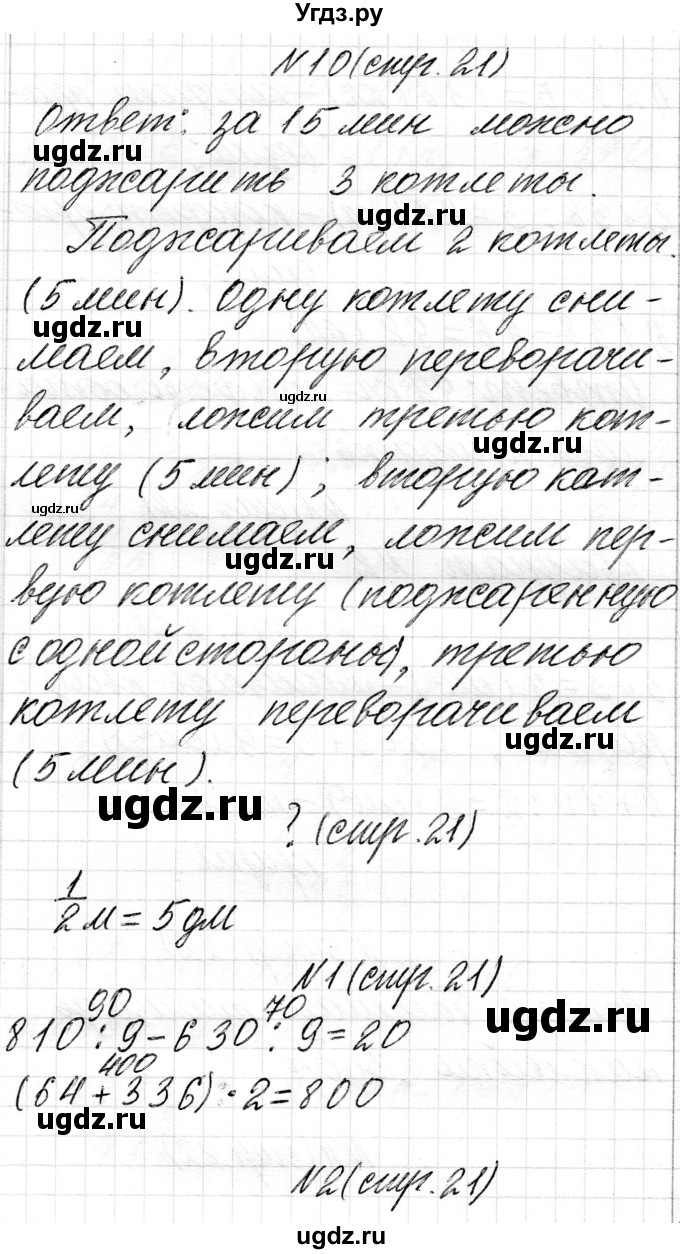 Угдз.ру
№10(стр. 21)
Ответ: за 15 мин можно
ugdz.ru
поджарить 3 котлеты.
ugdz.ru
Поджариваем 2 котлеты.
(5 мин). Одну котлету сни-
ugdz.ru
маем, вторую переворачи-
ugdz.ru
ваем, ложим третью кот-
ugdz.ru
лету (5 мин); вторую кот-
ugdz.ru
лету снимаем, ложим пер-
ugdz.ru
вую котлету (поджаренную
с одной стороны), третью
котлету переворачиваем
ugdz.ru
(5 мин).
ugdz.ru
? (стр. 21)
1/2 м = 5 дм
№1(стр. 21)
90 70
ugdz.ru
810 : 9 - 630 : 9 = 20
400
(64 + 336) · 2 = 800
ugdz.ru
№2(стр. 21)
ugdz.ru
ugdz.ru